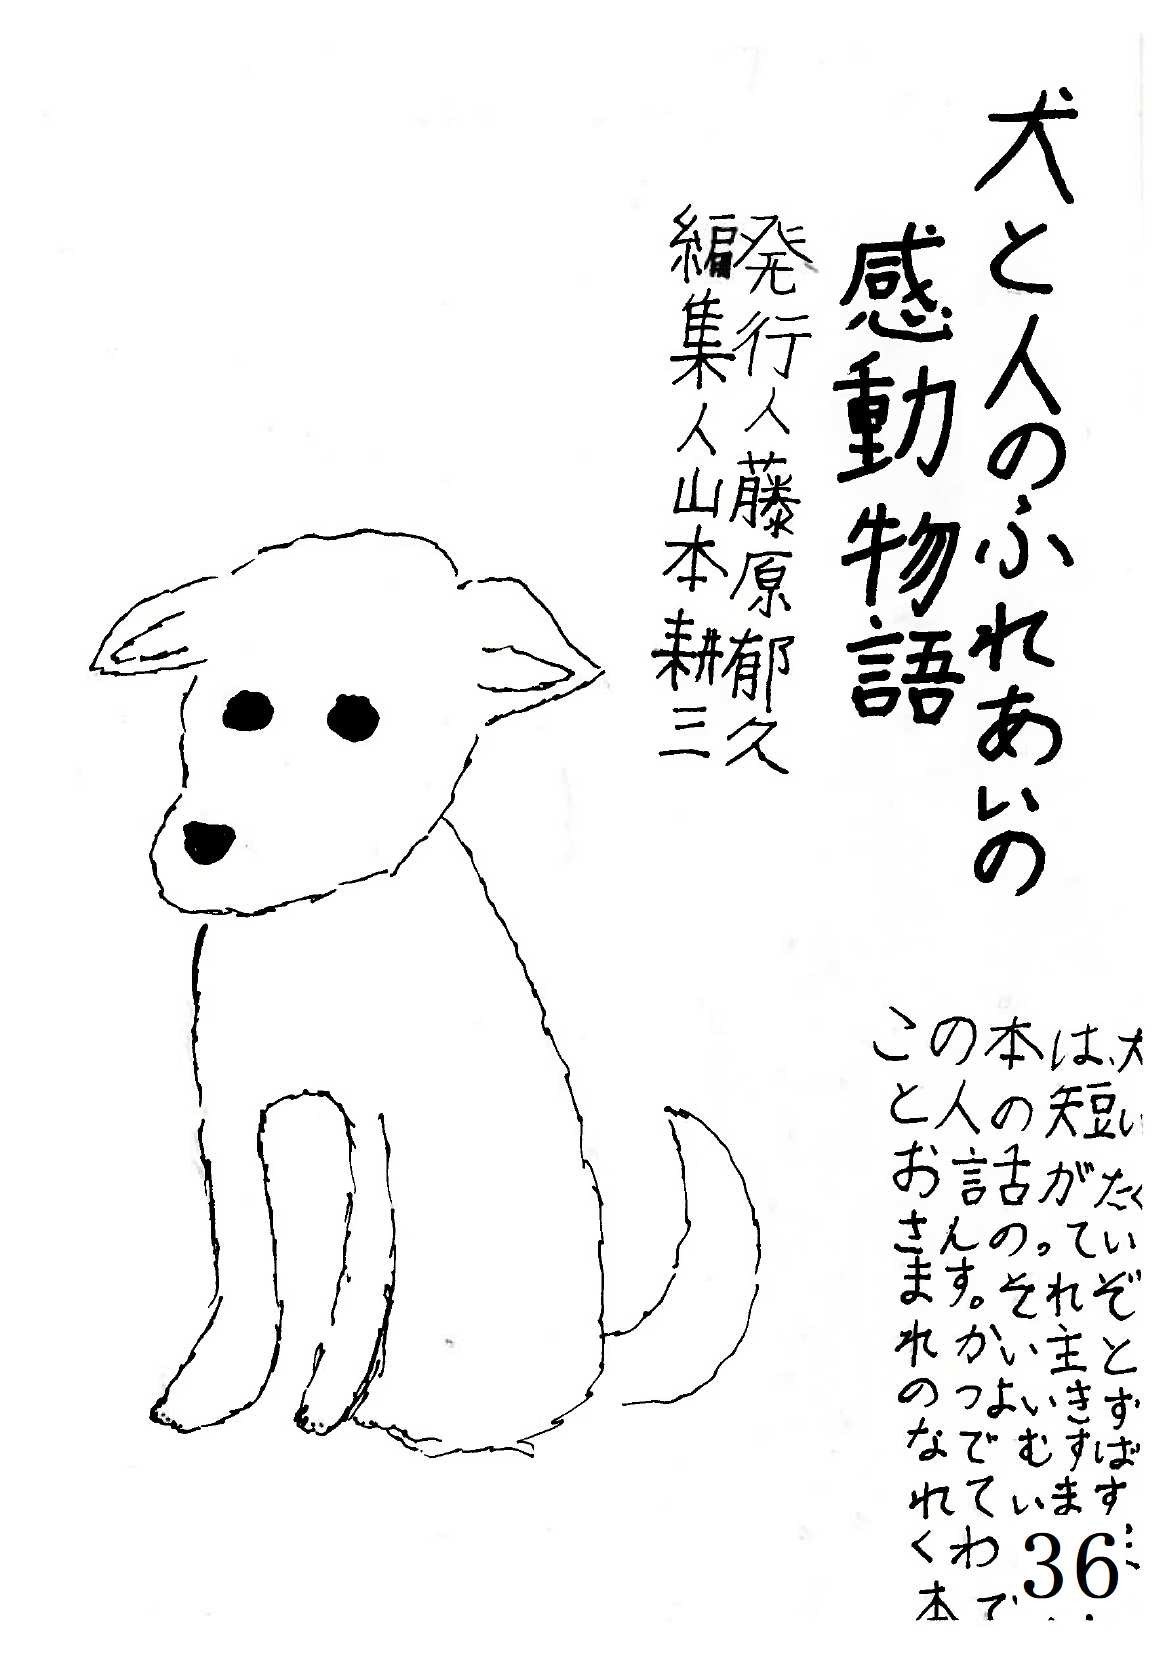 犬と人のふれあいの
感動物語
発行人藤原郁久
編集人山本耕三
この本は、犬
と人の短い
お話がたく
さんのってい
ます。それぞ
れかい主と
のつよいきず
なでむすば
れています
くわ
本で
36